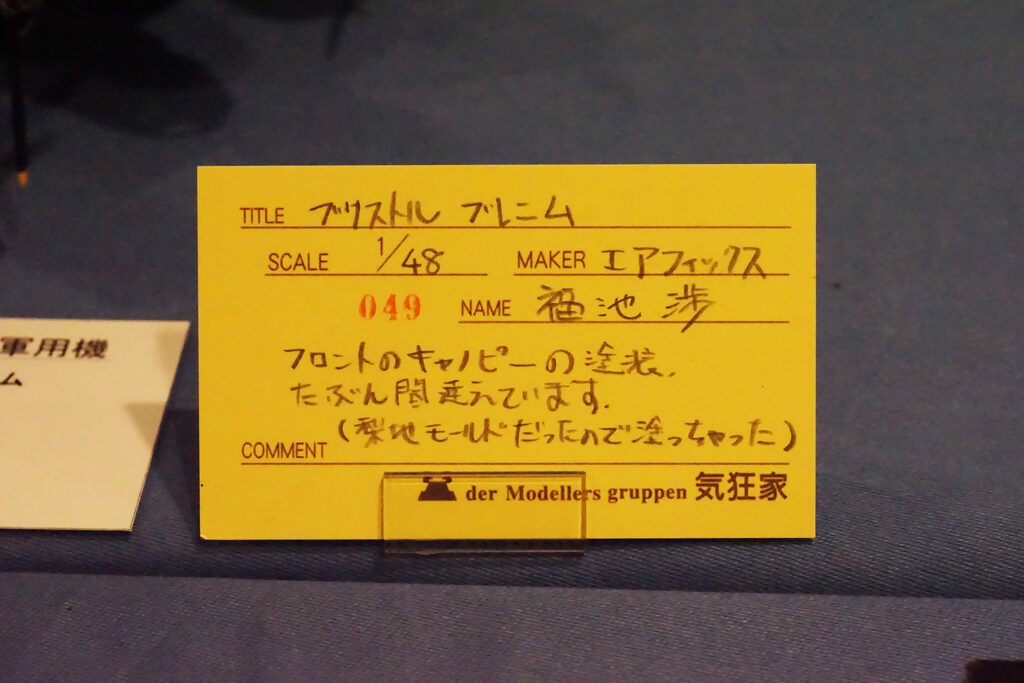 TITLE ブリストル ブレニム
SCALE 1/48 MAKER エアフィックス
049 NAME 福池 渉
フロントのキャノピーの塗装、
たぶん間違えています。
(梨地モールドだったので塗っちゃった)
COMMENT
der Modellers gruppen 気狂家
軍用機
ム